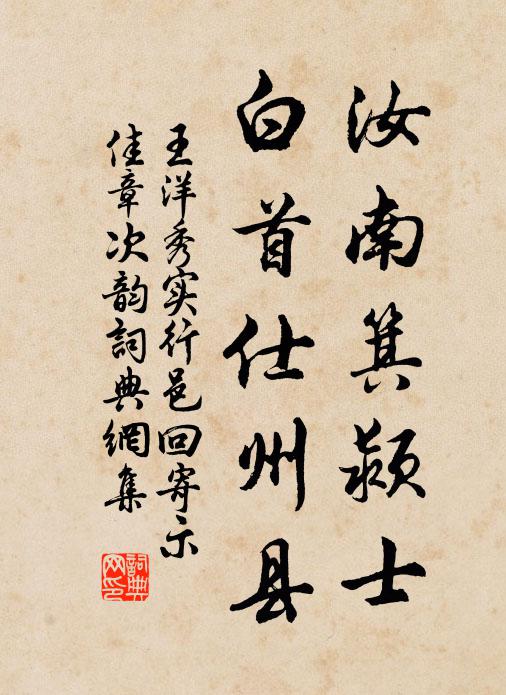 汝南箕颍士
白首仕州县
王洋秀实行邑回寄示
佳章次韵詞典網集
詞典
网印